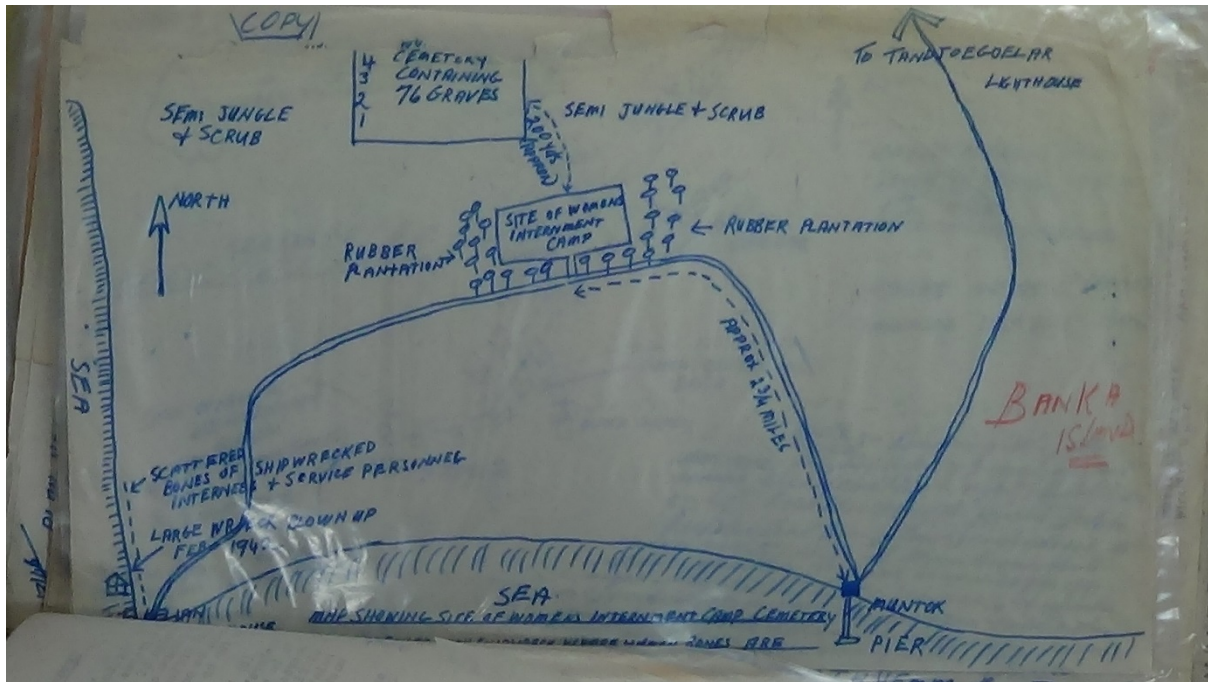 COPY
4
3
2
1
CEMETORY
CONTAINING
76 GRAVES
SEMI JUNGLE
& SCRUB
SEMI JUNGLE & SCRUB
TO TANDJOEGOELAR
LIGHTHOUSE
200 yds
APPROX
NORTH
SITE OF WOMENS
INTERNMENT
CAMP
RUBBER
PLANTATION
RUBBER PLANTATION
APPROX 2 3/4 MILES
SEA
BANKA
ISLAND
SCATTERED
BONES OF SHIPWRECKED
INTERNEES & SERVICE PERSONNEL
LARGE WRECK BLOWN UP
FEB
SEA
MUNTOK
PIER
MAP SHOWING SITE OF WOMENS INTERNMENT CAMP CEMETERY
BONES ARE